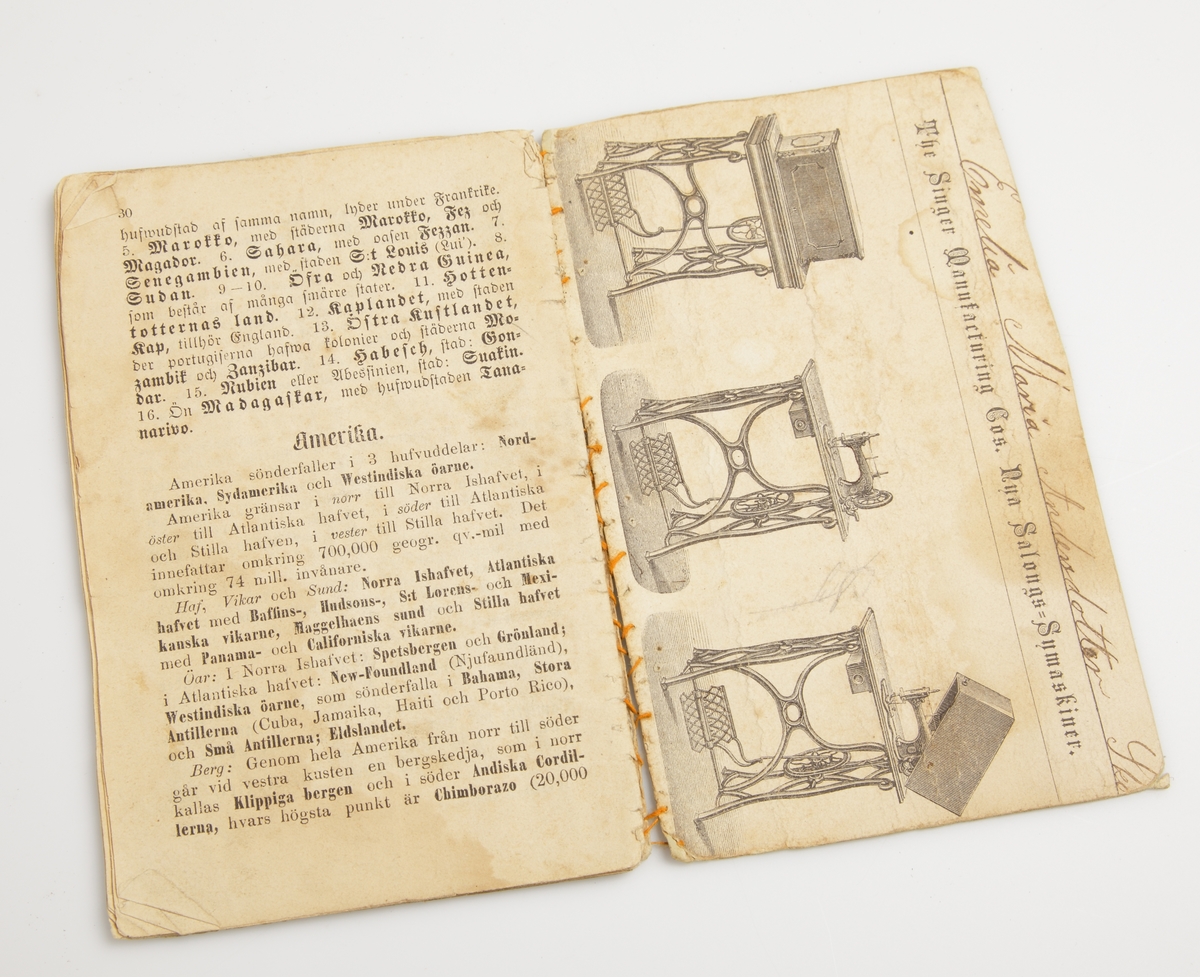 30
hufwudstad af samma namn, lyder under Frankrike.
5. Marokko, med städerna Marokko, Fez och
Magador. 6. Sahara, med oasen Fezzan. 7.
Senegambien, med staden S:t Louis (Lui'). 8.
Sudan. 9—10. Öfra och Nedra Guinea,
som består af många smärre stater. 11. Hotten-
totternas land. 12. Kaplandet, med staden
Kap, tillhör England. 13. Östra Kustlandet,
der portugiserna hafwa kolonier och städerna Mo-
zambik och Zanzibar. 14. Habesch, stad: Gon-
dar. 15. Nubien eller Abessinien, stad: Suakin.
16. Ön Madagaskar, med hufwudstaden Tana-
narivo.
Amerika.
Amerika sönderfaller i 3 hufvuddelar: Nord-
amerika. Sydamerika och Westindiska öarne.
Amerika gränsar i norr till Norra Ishafvet, i
öster till Atlantiska hafvet, i söder till Atlantiska
och Stilla hafven, i vester till Stilla hafvet. Det
innefattar omkring 700,000 geogr. qv.-mil med
omkring 74 mill. invånare.
Haf, Vikar och Sund: Norra Ishafvet, Atlantiska
hafvet med Baffins-, Hudsons-, S:t Lorens- och Mexi-
kanska vikarne, Maggelhaens sund och Stilla hafvet
med Panama- och Californiska vikarne.
Öar: I Norra Ishafvet: Spetsbergen och Grönland;
i Atlantiska hafvet: New-Foundland (Njufaundländ),
Westindiska öarne, som sönderfalla i Bahama, Stora
Antillerna (Cuba, Jamaika, Haiti och Porto Rico),
och Små Antillerna; Eldslandet.
Berg: Genom hela Amerika från norr till söder
går vid vestra kusten en bergskedja, som i norr
kallas Klippiga bergen och i söder Andiska Cordil-
lerna, hvars högsta punkt är Chimborazo (20,000
Maria Andersdotter
The Singer Manufacturing Cos. Nya Salongs=Symaskiner.